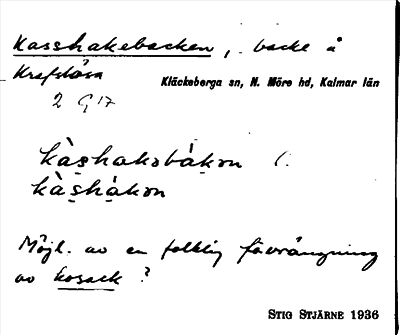 Kasshakebacken, backe å
Krafslösa
Kläckeberga sn, N. Möre hd, Kalmar län
2 G 17
kàs̱hakəbàkən l.
kàs̱hàkən
Möjl. av en folklig förvrängning
av kosack?
STIG STJÄRNE 1936